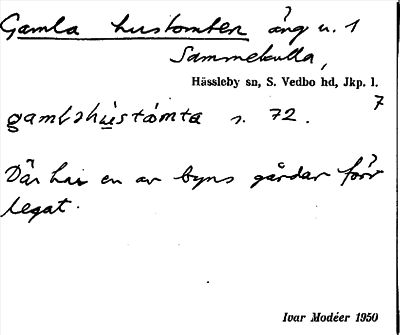 Gamla hustomten äng u. 1
Sammekulla,
Hässleby sn, S. Vedbo hd, Jkp. l.
7
s. 72.
Där har en av byns gårdar förr
legat.
Ivar Modéer 1950